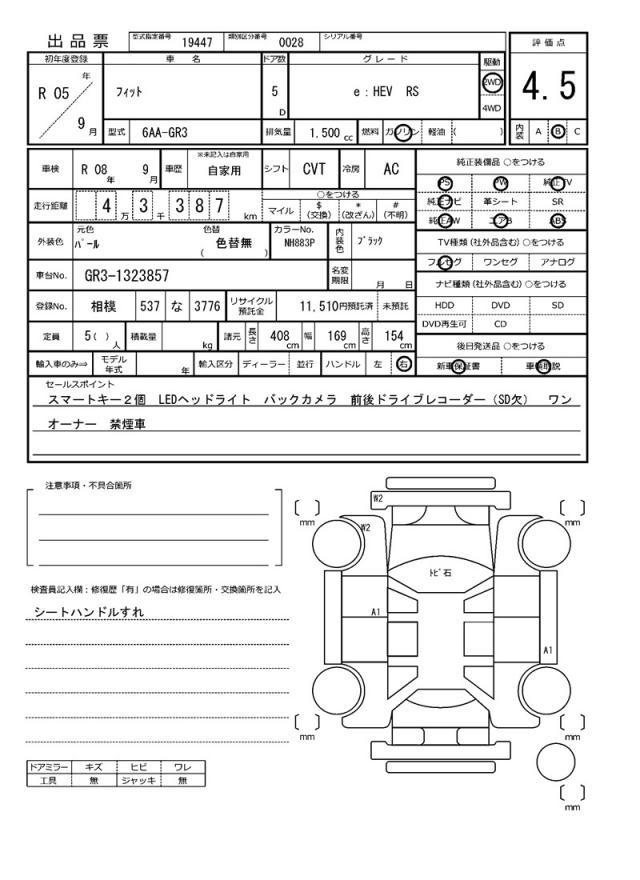 出品票 型式指定番号 19447 類別区分番号 0028 シリアル番号
評価点
4.5
内装 A B C
初年度登録 車名 ドア数 グレード 駆動
R 05 年 9 月
フィット 5 D e:HEV RS 2WD
4WD
型式 6AA-GR3 排気量 1.500 cc 燃料 ガソリン 軽油 ( )
車検 R 08 年 9 月 車歴 ※未記入は自家用 自家用 シフト CVT 冷房 AC
走行距離 4 万 3 千 3 8 7 km
○をつける
マイル $ (交換) * (改ざん) # (不明)
外装色 元色 パール 色替 ( 色替無 ) カラーNo. NH883P 内装色 ブラック
車台No. GR3-1323857 名変期限 月 日
登録No. 相模 537 な 3776 リサイクル預託金 11,510円預託済 未預託
定員 5( ) 人 積載量 kg 諸元 長さ 408 cm 幅 169 cm 高さ 154 cm
輸入車のみ⇒ モデル年式 年 輸入区分 ディーラー 並行 ハンドル 左 右
純正装備品 ○をつける
PS PW 純正TV
純正ナビ 革シート SR
純正AW エアB ABS
TV種類 (社外品含む) ○をつける
フルセグ ワンセグ アナログ
ナビ種類 (社外品含む) ○をつける
HDD DVD SD
DVD再生可 CD
後日発送品 ○をつける
新車保証書 車輌取説
セールスポイント
スマートキー2個 LEDヘッドライト バックカメラ 前後ドライブレコーダー（SD欠） ワン
オーナー 禁煙車
注意事項・不具合箇所
検査員記入欄：修復歴「有」の場合は修復箇所・交換箇所を記入
シートハンドルすれ
ドアミラー キズ ヒビ ワレ
工具 無 ジャッキ 無
W2
mm
mm
W2
トビ石
A1
A1
mm
mm
mm